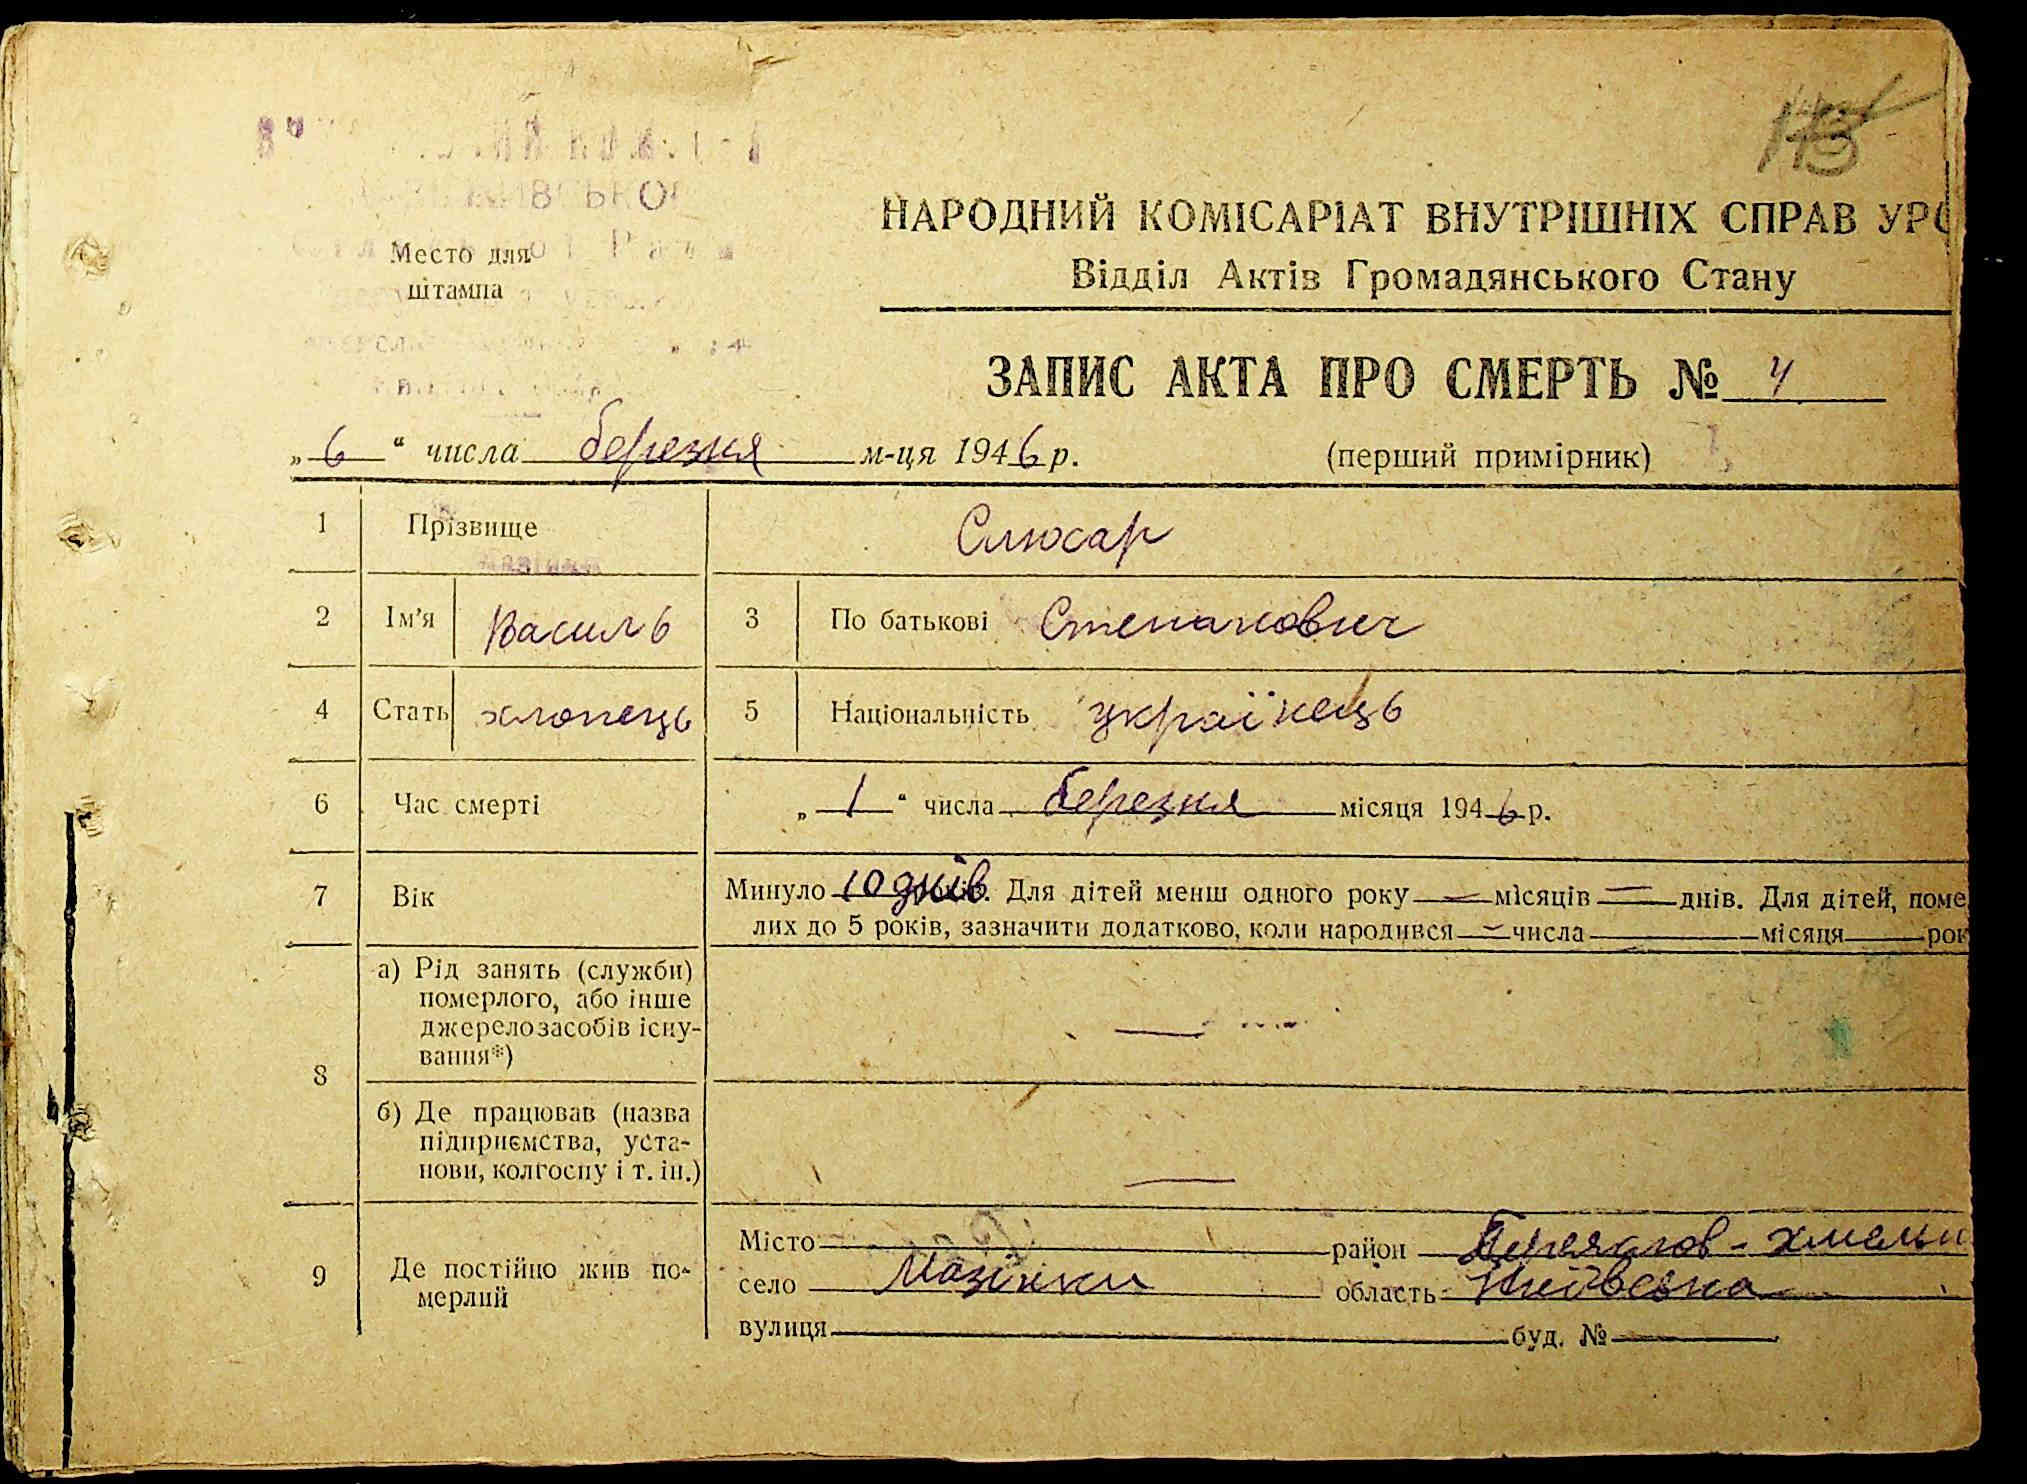 НАРОДНИЙ КОМІСАРІАТ ВНУТРІШНІХ СПРАВ УРС
Відділ Актів Громадянського Стану
Место для
штампа
ЗАПИС АКТА ПРО СМЕРТЬ № 4
„6“ числа березня м-ця 1946 р.
(перший примірник)
1 Прізвище Слюсар
2 Ім'я Василь 3 По батькові Степанович
4 Стать хлопець 5 Національність українець
6 Час смерті „1“ числа березня місяця 1946 р.
7 Вік Минуло 10 днів. Для дітей менш одного року — місяців — днів. Для дітей, поме
лих до 5 років, зазначити додатково, коли народився — числа — місяця рок
8 а) Рід занять (служби)
померлого, або інше
джерело засобів існу-
вання*) —
б) Де працював (назва
підприємства, уста-
нови, колгоспу і т. ін.) —
9 Де постійно жив по-
мерлий
Місто район Переяслов-хмельн
село Мазінки область Київська
вулиця буд. №